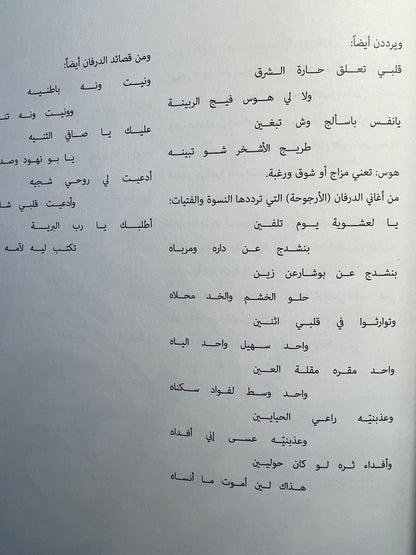 ويرددن أيضاً:
قلبي تعلق حارة الشرق
ولا لي هوس فيج الربينة
يانفس باسألج وش تبغين
طريج الأشخر شو تبينه
هوس: تعني مزاج أو شوق ورغبة.
من أغاني الدرفان (الأرجوحة) التي ترددها النسوة والفتيات:
يا لعشوية يوم تلفين
بنشدج عن داره ومرباه
بنشدج عن بوشارعن زين
حلو الخشم والخد محلاه
وتوارثوا في قلبي اثنين
واحد سهيل واحد الياه
واحد مقره مقلة العين
واحد وسط لفواد سكناه
وعذبنيّه راعي الحيايين
وعذبنيّه عسى إني أفداه
وأفداء ثره لو كان حولين
هذاك لين أموت ما أنساه
ومن قصائد الدرفان أيضاً:
ونيت ونه باطنيه
وونيت ونه
عليك يا صافي الثنيه
يا بو نهود
أدعيت لي روحي شجيه
وأدعيت قلبي
أطلبك يا رب البرية
تكتب ليه لآمه